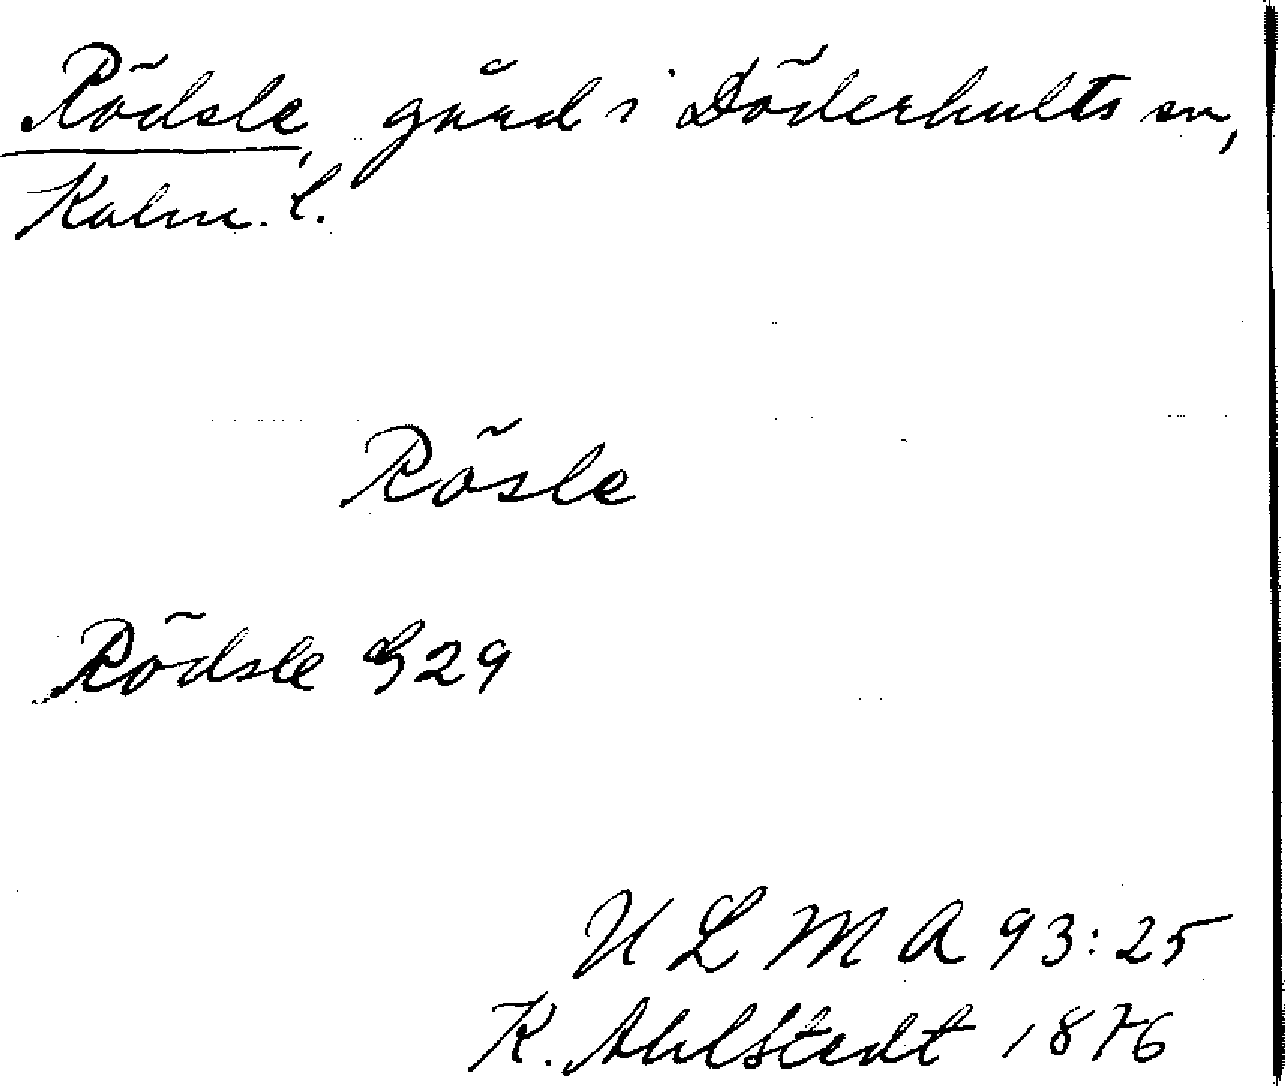 Rödsle, gård i Döderhults sn,
Kalm. l.
Rösle
Rödsle G29
ULMA 93:25
K. Ahlstedt 1876